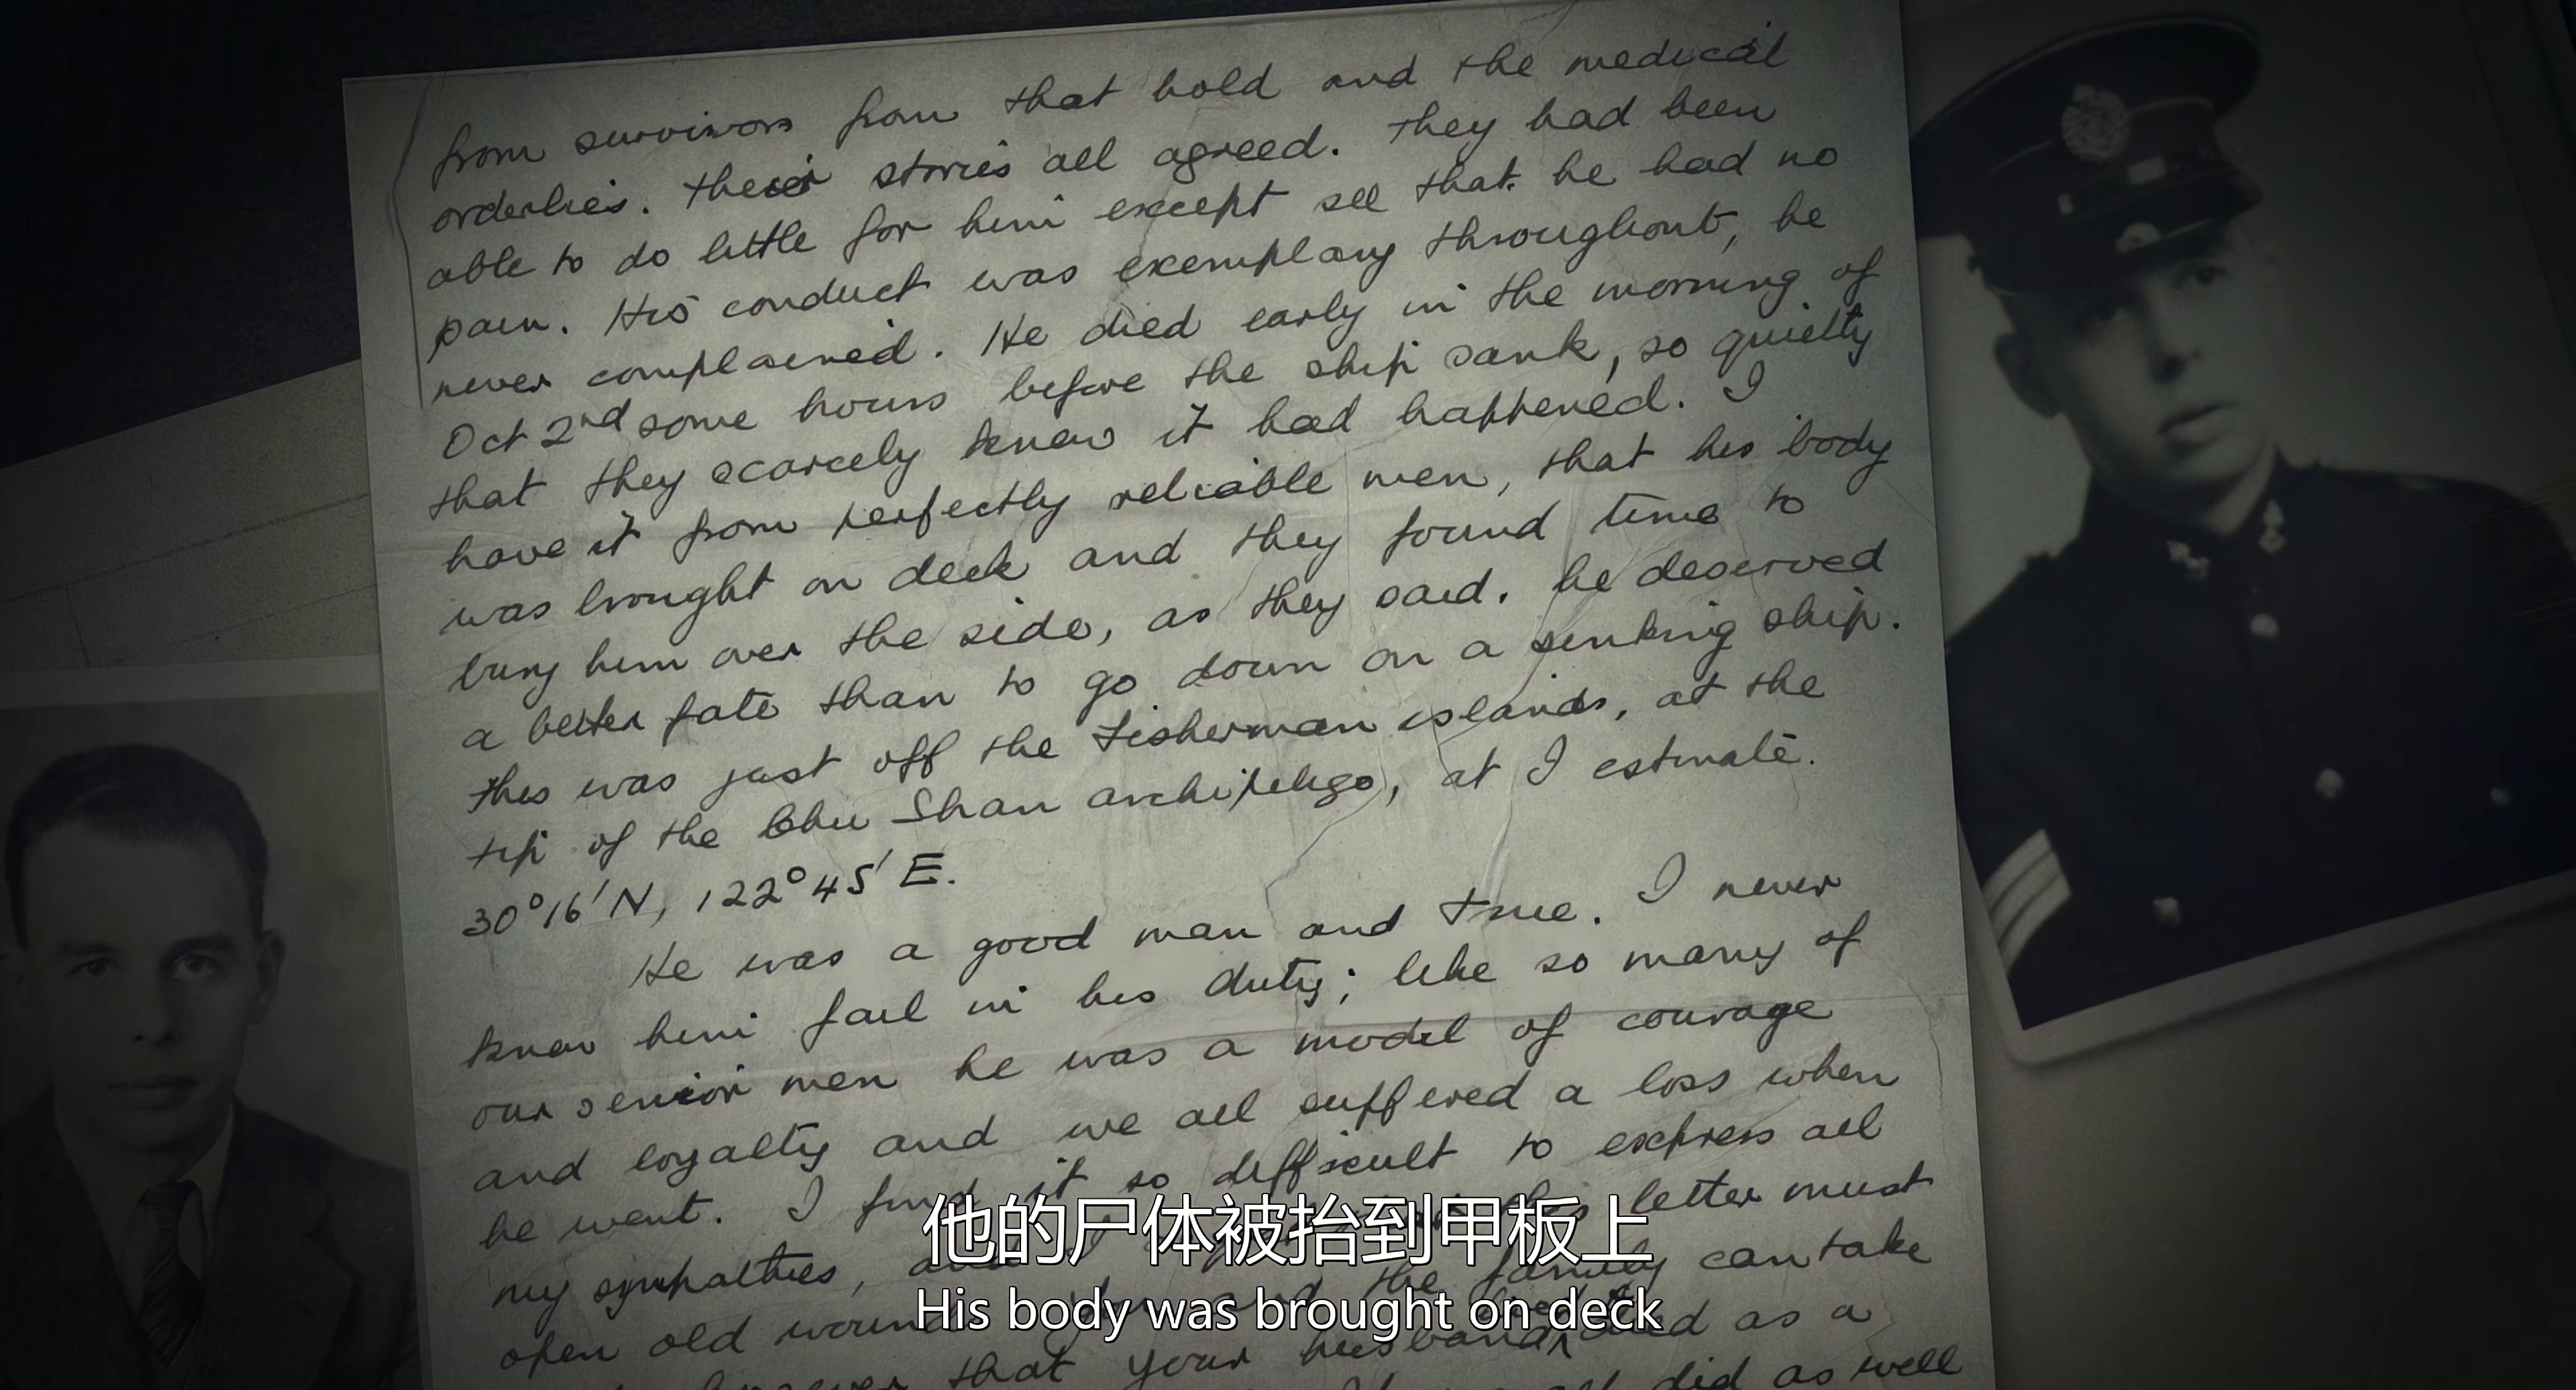 from survivors from that hold and the medical
orderlies. Their stories all agreed. They had been
able to do little for him except see that he had no
pain. His conduct was exemplary throughout, he
never complained. He died early in the morning of
Oct 2nd some hours before the ship sank, so quietly
that they scarcely knew it had happened. I
have it from perfectly reliable men, that his body
was brought on deck and they found time to
bury him over the side, as they said. he deserved
a better fate than to go down on a sinking ship.
this was just off the Fisherman islands, at the
tip of the Chu Shan archipelago, at I estimate.
30°16'N, 122°45'E.
He was a good man and true. I never
knew him fail in his duty; like so many of
our senior men he was a model of courage
and loyalty and we all suffered a loss when
he went. I find it so difficult to express all
my sympathies, and letter must
open old the family can take
that your husband died as a
did as well
他的尸体被抬到甲板上
His body was brought on deck